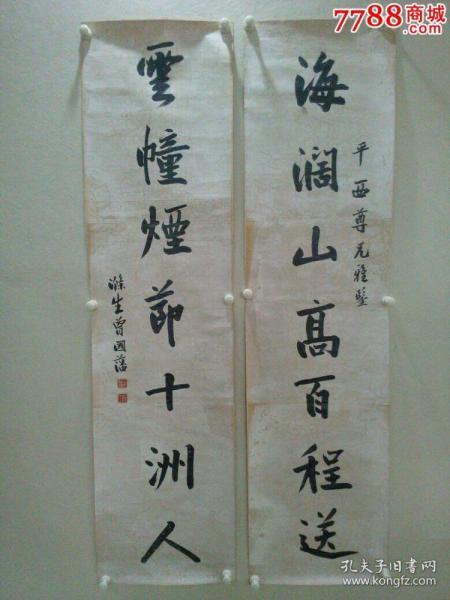 7788商城
.com
海濶山高百程送
平西尊兄雅鑒
雲幢煙節十洲人
滌生曾國藩
孔夫子旧书网
www.kongfz.com